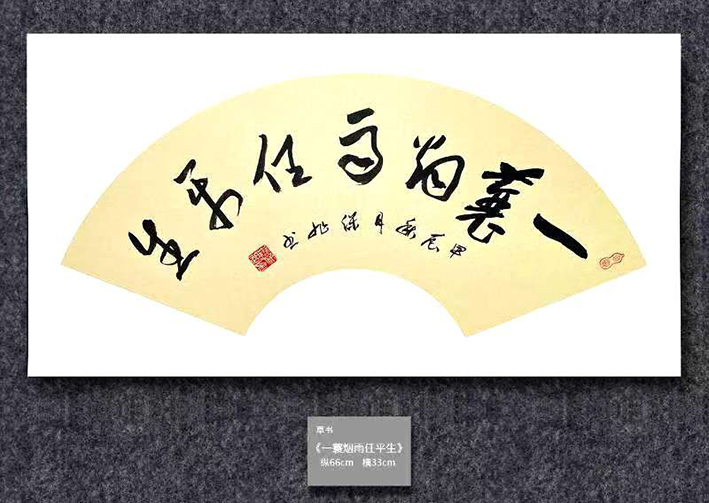 一蓑烟雨任平生
甲辰 月保 书
草书
《一蓑烟雨任平生》
纵66cm 横33cm